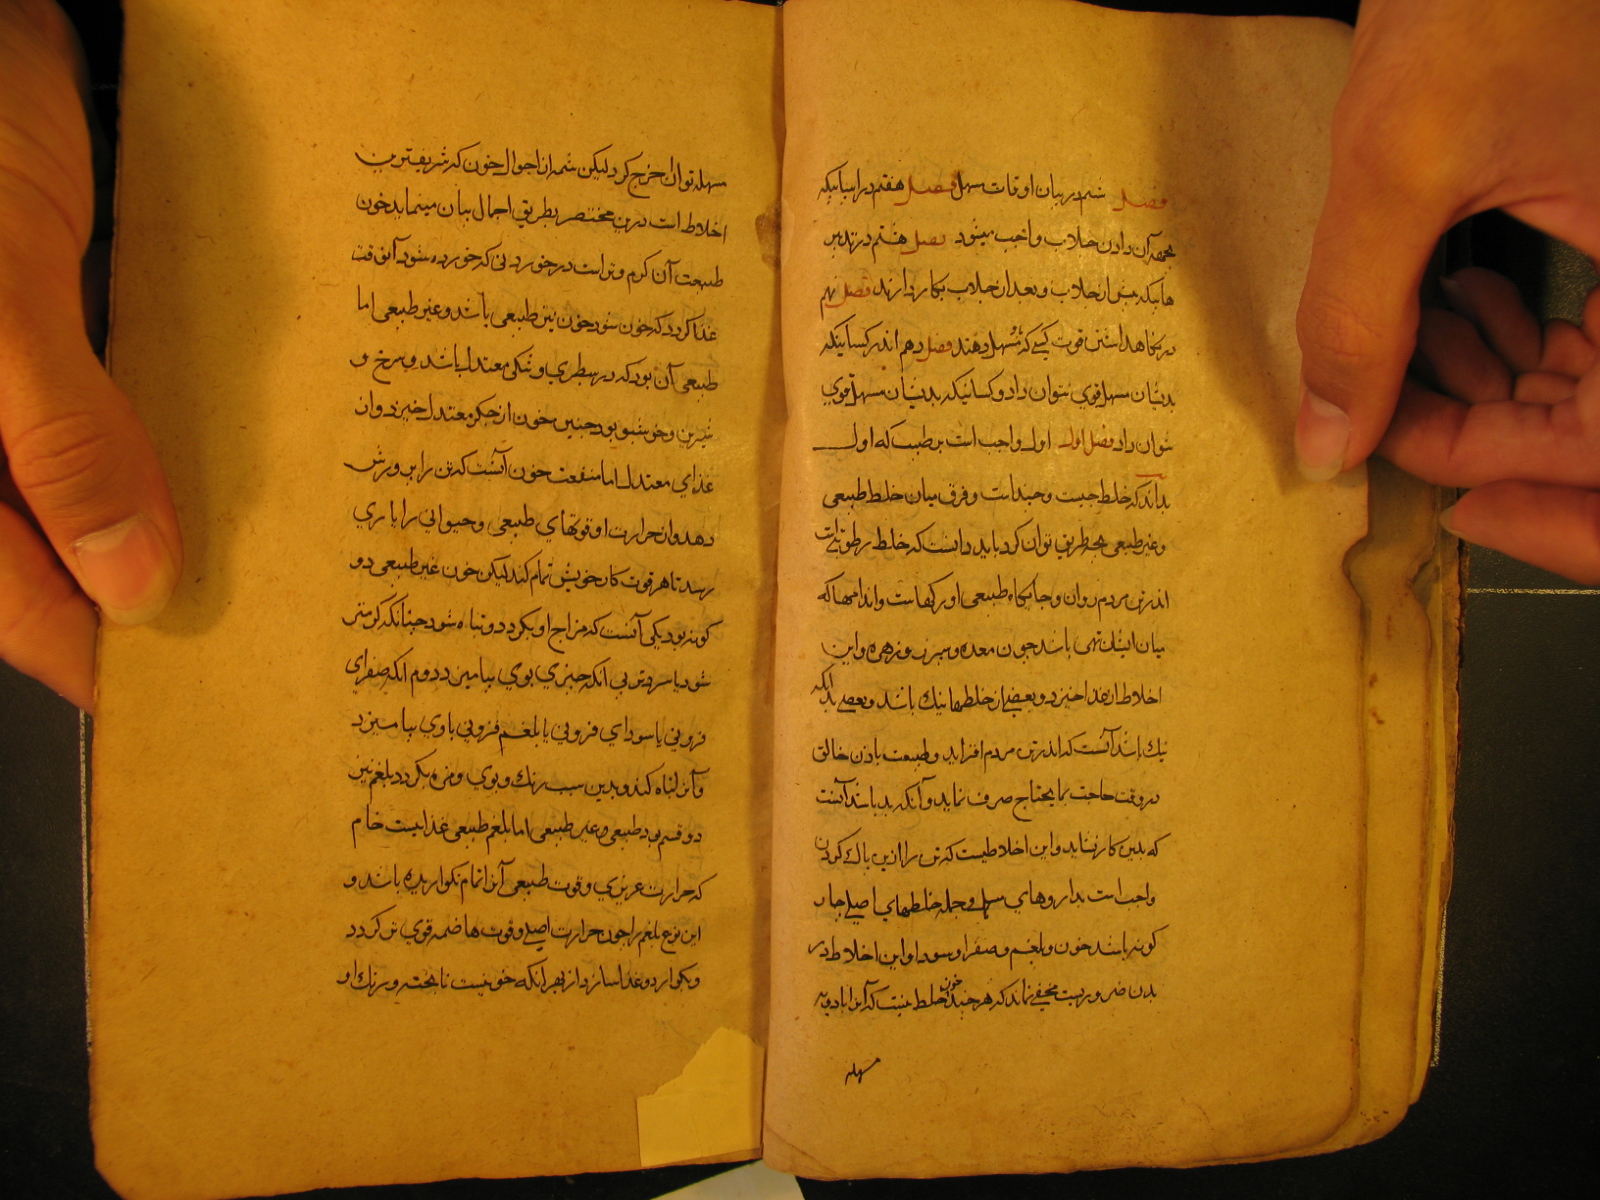 فصل ششم در بیان اوقات مسهل فصل هفتم در ادبیانیکه
بجهة آن دادن جلاب واجب میشود فصل هشتم در تدبیر
هائیکه پیش از جلاب و بعد از جلاب بکار دارند فصل نهم
در نکاهداشتن قوت کسی که مسهل دهند فصل دهم اندر کسانیکه
بدیشان مسهل قوی نتوان داد و کسانیکه بدیشان مسهل قوی
توان داد فصل اول اول واجب است بر طبیب که اول
بداند که خلط چیست و چند است و فرق میان خلط طبیعی
و غیر طبیعی بچه طریق توان کرد باید دانست که خلط رطوبتیست
اندر تن مردم روان و جایکاه طبیعی او رکهاست و اندامها که
میان ایشان تهی باشد چون معده و سپرز و زهره و این
اخلاط از غذا خیزد و بعضی از خلطها نیک باشد و بعضی بد انکه
نیک باشد آنست که اندر تن مردم افزاید و طبیعت باذن خالق
در وقت حاجت بما یحتاج صرف نماید و آنکه بد باشد آنست
که بدین کار نشاید و این اخلاطیست که تن را ازین پاک کردن
واجب است بداروهای مسهل و جمله خلطهای اصلی چهار
کونه باشد خون و بلغم و صفرا و سودا و این اخلاط در
بدن ضروریست مخفی نماند که هر چند خون خلط نیست که آنرا بادویه
مسهله
مسهله توان اخرج کرد لیکن شمه از احوال خون که شریفترین
اخلاط است درین مختصر بطریق اجمال بیان مینماید خون
طبیعت آن کرم و تر است در خوردنی که خورده شود آنوقت
غذا کردد که خون شود خون نیز طبیعی باشد و غیر طبیعی اما
طبیعی آن بود که در سطبری و تنکی معتدل باشد و سرخ و
شیرین و خوشبو بود چنین خون از جکر معتدل خیزد و از
غذای معتدل اما منفعت خون آنست که تن را پرورش
دهد و از حرارت او قوتهای طبیعی و حیوانی را یاری
رسد تا هر قوت کار خویش تمام کند لیکن خون غیر طبیعی دو
کونه بود یکی آنست که مزاج او بکردد و تباه شود چنانکه کرمتر
شود یا سردتر بی انکه چیزی بوی بیامیزد دوم انکه صفرای
فزونی یا سودای فزونی یا بلغم فزونی با وی بیامیزد
و آنرا تباه کند و بدین سبب رنک و بوی و مزه بکردد بلغم نیز
دو قسم بود طبیعی و غیر طبیعی اما بلغم طبیعی غذائیست خام
که حرارت غریزی و قوت طبیعی آنرا تمام نکواریده باشد و
این نوع بلغم را چون حرارت اصلی و قوت هاضمه قوی تر کردد
و بکوارد و غذا سازد از بهر انکه خونیست ناپخته و رنک او